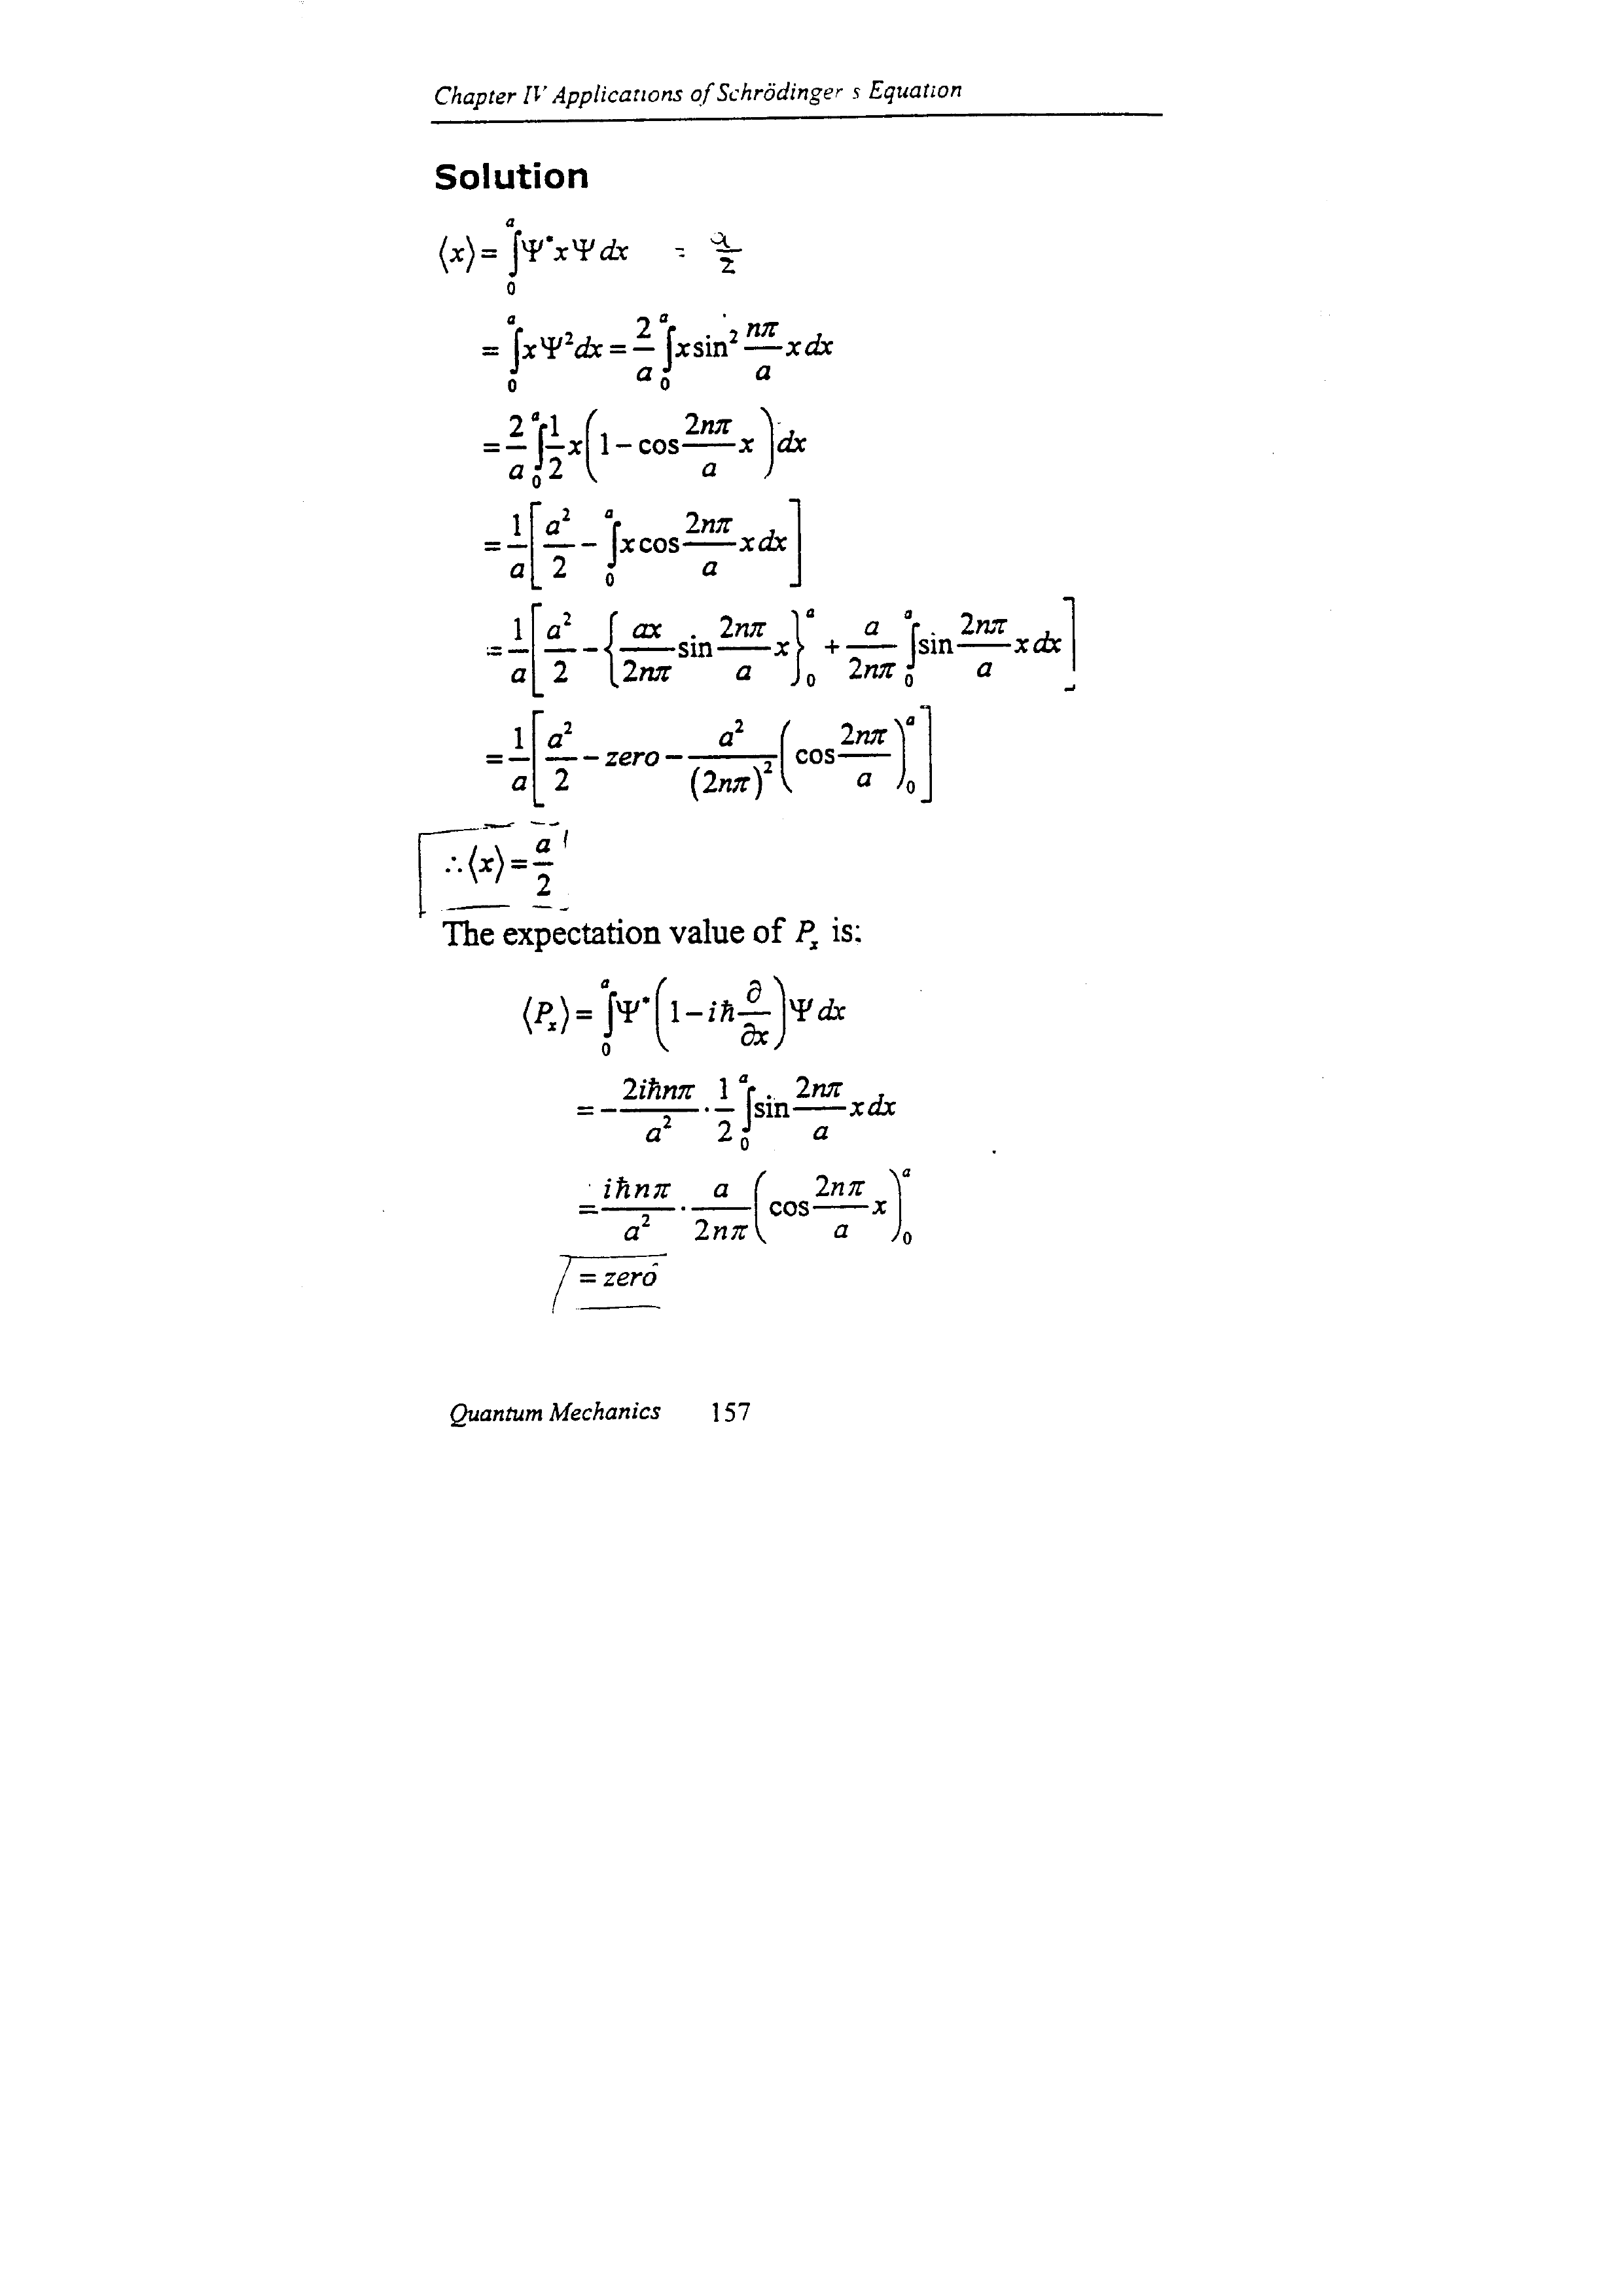 Chapter IV Applications of Schrödinger s Equation
Solution
⟨x⟩ = ∫₀ᵃ Ψ*xΨ dx = a/2
= ∫₀ᵃ xΨ²dx = 2/a ∫₀ᵃ x sin² (nπ/a) x dx
= 2/a ∫₀ᵃ 1/2 x (1 − cos (2nπ/a) x) dx
= 1/a [a²/2 − ∫₀ᵃ x cos (2nπ/a) x dx]
= 1/a [a²/2 − {ax/2nπ sin (2nπ/a) x}₀ᵃ + a/2nπ ∫₀ᵃ sin (2nπ/a) x dx]
= 1/a [a²/2 − zero − a²/(2nπ)² (cos 2nπ/a)₀ᵃ]
∴⟨x⟩ = a/2
The expectation value of Pₓ is:
⟨Pₓ⟩ = ∫₀ᵃ Ψ* (1 − iħ ∂/∂x) Ψ dx
= − 2iħnπ/a² · 1/2 ∫₀ᵃ sin (2nπ/a) x dx
= iħnπ/a² · a/2nπ (cos (2nπ/a) x)₀ᵃ
= zero
Quantum Mechanics 157